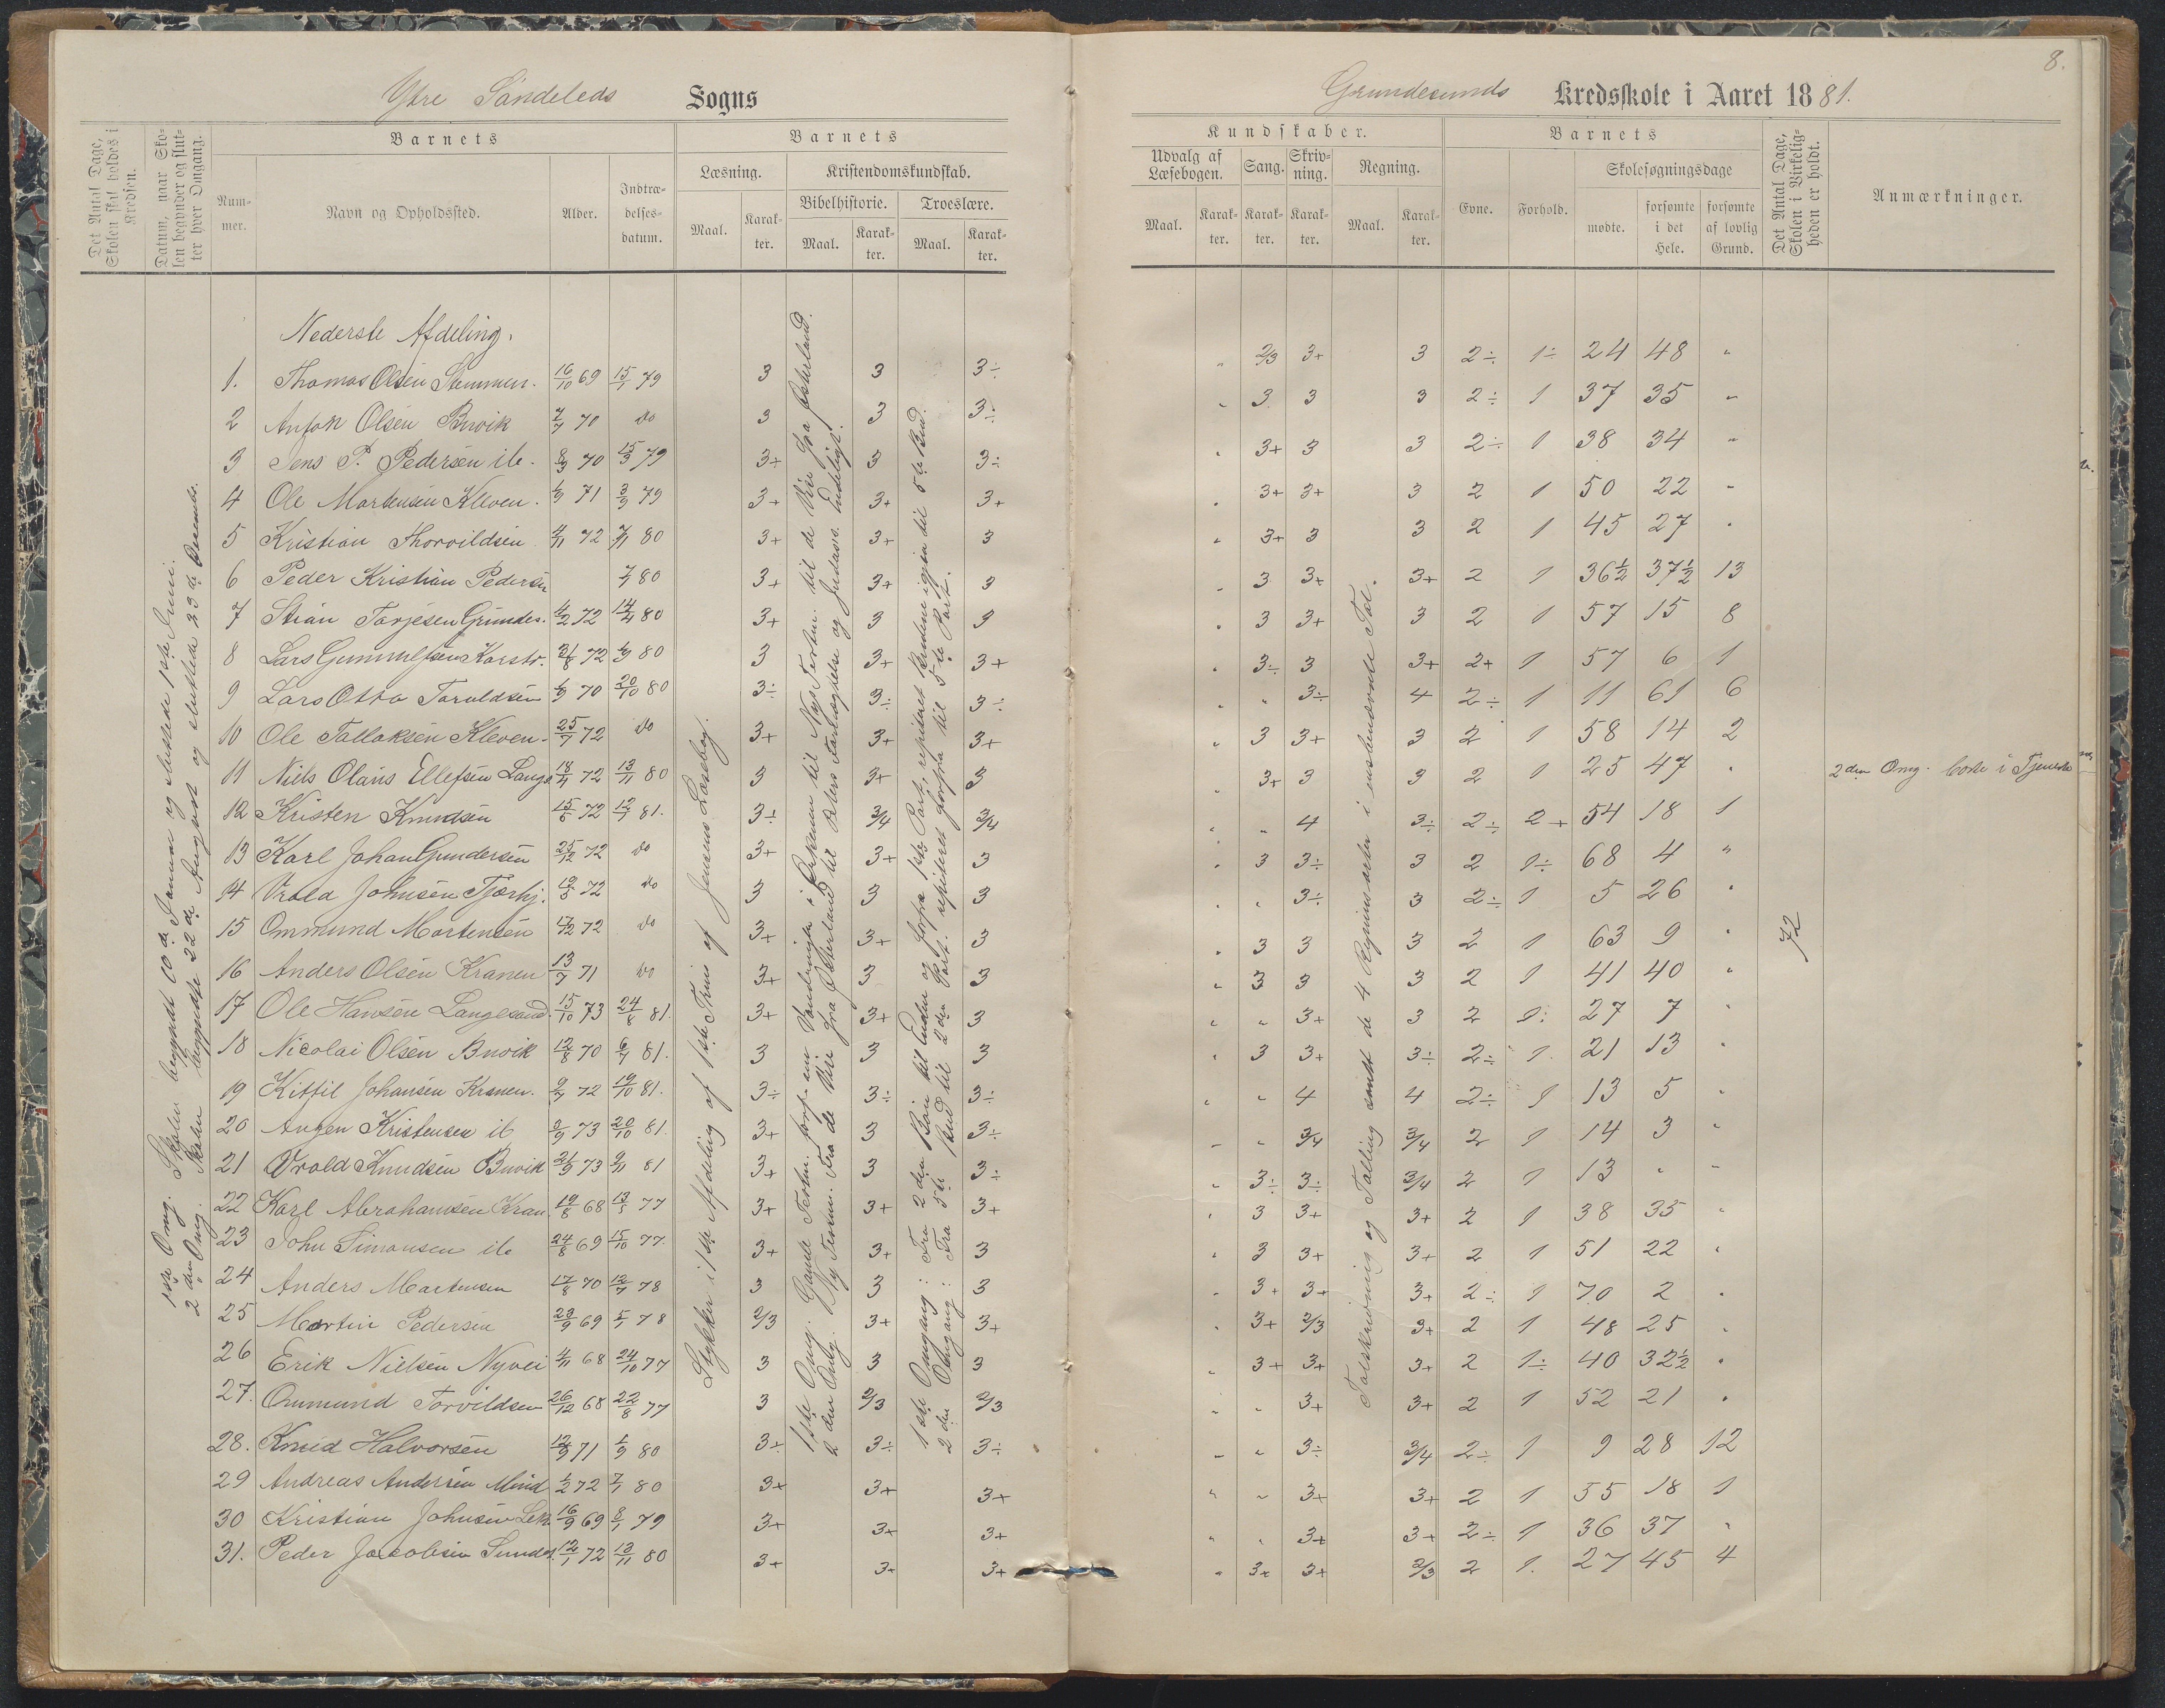 Ytre Søndeleds Sogns
Grundesunds Kredsskole i Aaret 1881.
8.
Det Antal Dage, Skolen skal holdes i Kredsen.
Datum, naar Skolen begynder og slutter hver Omgang.
Barnets
Nummer.
Navn og Opholdssted.
Alder.
Indtrædelsesdatum.
Barnets
Læsning.
Maal.
Karakter.
Kristendomskundskab.
Bibelhistorie.
Maal.
Karakter.
Troeslære.
Maal.
Karakter.
Kundskaber.
Udvalg af Læsebogen.
Maal.
Karakter.
Sang.
Karakter.
Skrivning.
Karakter.
Regning.
Maal.
Karakter.
Barnets
Evne.
Forhold.
Skolesøgningsdage
mødte.
forsømte i det Hele.
forsømte af lovlig Grund.
Det Antal Dage, Skolen i Virkeligheden er holdt.
Anmærkninger.
1ste Omg. Skolen begyndt 10de Januar og sluttede 1ste Juni.
2den Omg. Skolen begyndte 22de August og sluttede 23de December.
Stykker i 1ste Afdeling af 1ste Trin af Jensens Læsebog.
1ste Omg. Gamle Testm. forf. ein
2den Omg. Ny Testm. Fra de Vise fra Østerland til Peters Fornægtelse og Judas's Endeligt.
1ste Omgang: Fra 2den Bøn til Enden og forfra 1ste Part, repiteret
2den Omgang: Fra 5te Bud til 2den Part. repiteret forfra til 5te Part.
Talskrivning og Tælling samt de 4 Regningsarter i ensbenævnte Tal.
72
Nederste Afdeling.
1. Thomas Olsen Stemmen. 16/10 69 15/1 79 3 3 3÷ " 2/3 3+ 3 2÷ 1÷ 24 48 "
2 Anton Olsen Buvik 7/7 70 do 3 3 3÷ " 3 3 3 2÷ 1 37 35 "
3 Jens P. Pedersen ib. 8/3 70 15/3 79 3+ 3 3÷ " 3+ 3 3 2÷ 1 38 34 "
4 Ole Mortensen Kleven. 1/9 71 3/9 79 3+ 3+ 3+ " 3+ 3+ 3 2 1 50 22 "
5 Kristian Thorvildsen 4/11 72 7/11 80 3+ 3+ 3 " 3+ 3 3 2 1 45 27 "
6 Peder Kristian Pedersen 7/1 80 3+ 3+ 3 " 3 3+ 3+ 2 1 36½ 37½ 13
7 Stian Tarjesen Grundes. 4/2 72 14/4 80 3+ 3 3 " 3 3+ 3 2 1 57 15 8
8 Lars Gunnulfsen Korstv. 31/8 72 1/9 80 3 3+ 3+ " 3÷ 3 3+ 2+ 1 57 6 1
9 Lars Otto Taraldsen 1/9 70 20/10 80 3÷ 3÷ 3÷ " " 3÷ 4 2÷ 1 11 61 6
10 Ole Tallaksen Kleven. 25/7 72 do 3+ 3+ 3+ " 3 3+ 3 2 1 58 14 2
11 Niels Olaus Ellefsen Langs 18/4 72 13/11 80 3 3+ 3 " 3+ 3 3 2 1 25 47 " 2den Omg. borte i Tjeneste
12 Kristen Knudsen 15/8 72 12/1 81. 3÷ 3/4 3/4 " " 4 3÷ 2÷ 2+ 54 18 1
13 Karl Johan Gundersen 25/12 72 do 3+ 3+ 3 " 3 3÷ 3 2 1÷ 68 4 "
14 Vrold Johnsen Tjærhj. 19/5 72 do 3 3 3 " " 3÷ 3 2÷ 1 5 26 "
15 Ommund Mortensen 17/12 72 do 3+ 3+ 3 " 3 3 3 2 1 63 9 "
16 Anders Olsen Kranen 13/7 71 do 3+ 3 3 " 3 3 3 2 1 41 40 "
17 Ole Hansen Langesand. 15/10 73 24/8 81. 3+ 3+ 3 " " 3+ 3 2 1÷ 27 7 "
18 Nicolai Olsen Buvik 12/8 70 6/4 81. 3 3 3 " 3 3+ 3÷ 2÷ 1 21 13 "
19 Kittil Johansen Kranen. 9/7 72 19/10 81. 3÷ 3÷ 3÷ " " 4 4 2÷ 1 13 5 "
20 Angen Kristensen ib 9/9 73 20/10 81 3+ 3 3÷ " " 3/4 3/4 2 1 14 3 "
21 Vrold Knudsen Buvik 21/9 73 9/11 81 3+ 3 3÷ " 3÷ 3÷ 3/4 2 1 13 " "
22 Karl Abrahamsen Kran. 19/8 68 13/5 77 3+ 3+ 3+ " 3 3+ 3+ 2 1 38 35 "
23 John Simonsen ib 24/8 69 15/10 77. 3+ 3+ 3 " 3 3+ 3+ 2 1 51 22 "
24 Anders Martensen 17/8 70 12/7 78 3 3 3 " 3+ 3+ 3+ 2÷ 1 70 2 "
25 Martin Pedersen 23/9 69 5/1 78 2/3 3+ 3+ " 3+ 2/3 3+ 2 1 48 25 "
26 Erik Nielsen Nyvei 4/11 68 24/10 77 3 3 3 " 3+ 3+ 3+ 2 1÷ 40 32½ "
27. Ommund Torvildsen 26/12 68 22/8 77 3 2/3 2/3 " " 3+ 3+ 2 1 52 21 "
28. Knud Halvorsen 12/9 71 1/9 80 3÷ 3÷ 3÷ " " 3÷ 3/4 2÷ 1 9 28 12
29 Andreas Andersen Mind 1/2 72 7/1 80 3+ 3+ 3+ " " 3+ 3+ 2 1 55 18 1
30 Kristian Johnsen Lek. 16/9 69 8/1 79 3+ 3+ 3+ " " 3+ 3+ 2÷ 1 36 37 "
31. Peder Jacobsen Sundes. 12/1 72 13/11 80 3+ 3+ 3+ " 3+ 3+ 2/3 2 1. 27 45 4